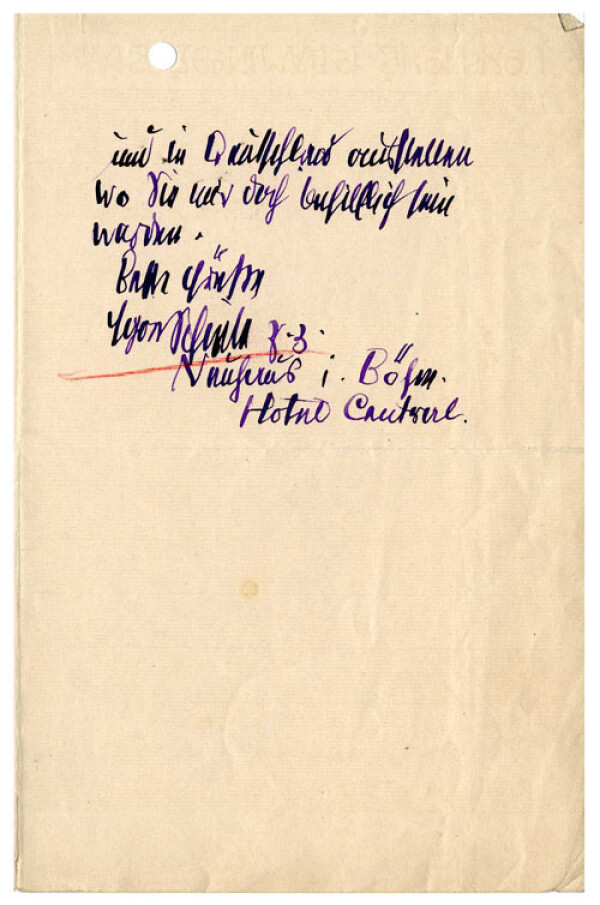 und in Deutschland ausstellen
wo Sie mir doch behilflich sein
werden.
Beste Grüße
Egon Schiele z. Z.
Neuhaus i. Böhm.
Hotel Central.